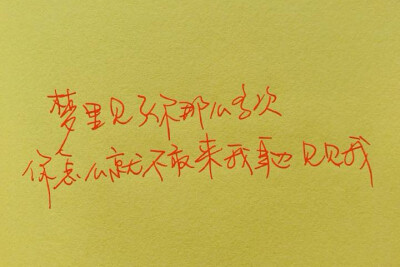 梦里见了你那么多次
你怎么就不敢来我身边见见我